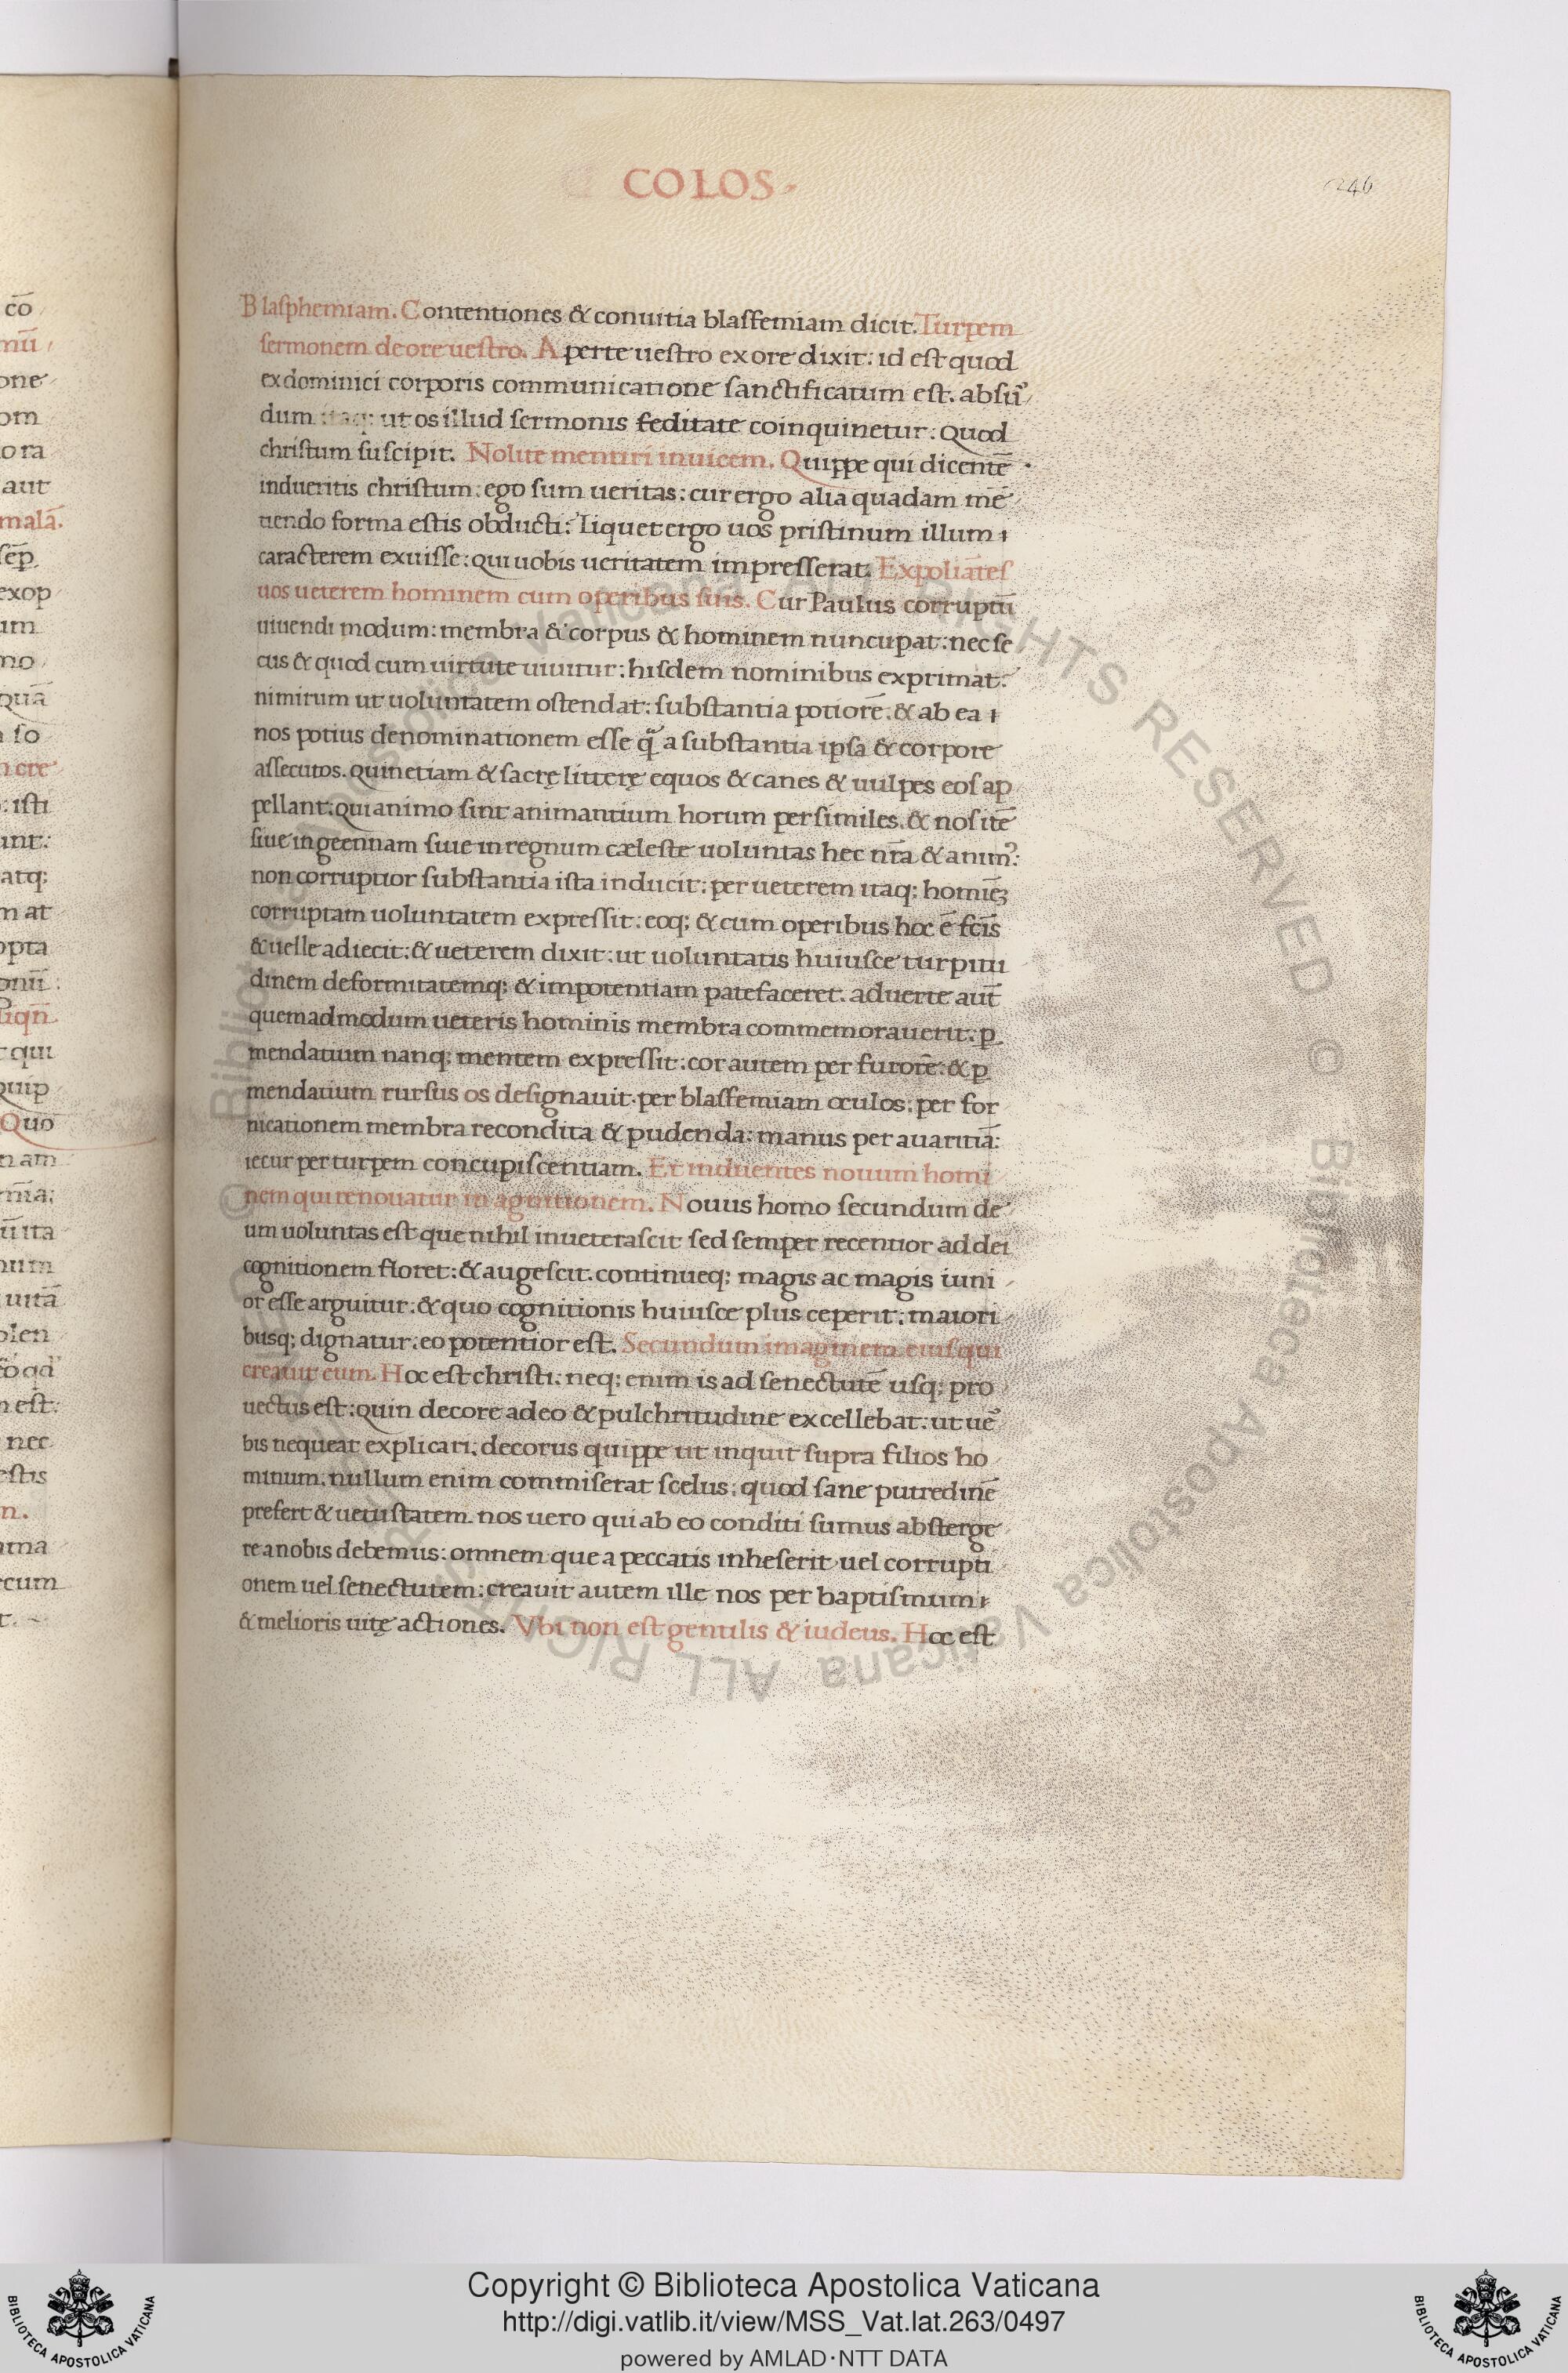 COLOS
246
Blasphemiam. Contentiones & conuitia blasfemiam dicit. Turpem
sermonem de ore uestro. Aperte uestro ex ore dixit: id est quod
ex dominici corporis communicatione sanctificatum est. absur
dum itaq; ut os illud sermonis feditate coinquinetur: quod
christum suscipit. Nolite mentiri inuicem. Quippe qui dicentē
indueritis christum: ego sum ueritas: cur ergo alia quadam mē
tiendo forma estis obducti: liquet ergo uos pristinum illum
caracterem exuisse: qui uobis ueritatem impresserat. Expoliātes
uos ueterem hominem cum operibus suis. Cur Paulus corruptū
uiuendi modum: membra & corpus & hominem nuncupat: nec se
cus & quod cum uirtute uiuitur: hisdem nominibus exprimat:
nimirum ut uoluntatem ostendat: substantia potiorē. & ab ea
nos potius denominationem esse q̄ a substantia ipsa & corpore
assecutos. quinetiam & sacrę litterę equos & canes & uulpes eos ap
pellant: qui animo sint animantium horum persimiles. & nos itē
siue in geennam siue in regnum cæleste uoluntas hec nr̄a & anim᾿:
non corruptior substantia ista inducit: per ueterem itaq; homiēꝫ
corruptam uoluntatem expressit: eoq; & cum operibus hoc ē fcīs
& uelle adiecit: & ueterem dixit: ut uoluntatis huiusce turpitu
dinem deformitatemq; & impotentiam patefaceret. aduerte aut̄
quemadmodum ueteris hominis membra commemorauerit: ꝑ
mendatium nanq; mentem expressit: cor autem per furorē: & ꝑ
mendatium rursus os designauit. per blasfemiam oculos: per for
nicationem membra recondita & pudenda: manus per auaritiā:
iecur per turpem concupiscentiam. Et induentes nouum homi
nem qui renouatur in agnitionem. Nouus homo secundum de
um uoluntas est que nihil inueterascit sed semper recentior ad dei
cognitionem floret: & augescit. continueq; magis ac magis iuni
or esse arguitur: & quo cognitionis huiusce plus ceperit: maiori
busq; dignatur: eo potentior est. Secundum imaginem eius qui
creauit eum. Hoc est christi: neq; enim is ad senectutē usq; pro
uectus est: quin decore adeo & pulchritudine excellebat: ut uer
bis nequeat explicari: decorus quippe ut inquit supra filios ho
minum: nullum enim commiserat scelus: quod sane putredinē
prefert & uetustatem. nos uero qui ab eo conditi sumus absterge
re a nobis debemus: omnem que a peccatis inheserit uel corrupti
onem uel senectutem: creauit autem ille nos per baptismum
& melioris uitę actiones. Vbi non est gentilis & iudeus. Hoc est
Copyright © Biblioteca Apostolica Vaticana
http://digi.vatlib.it/view/MSS_Vat.lat.263/0497
powered by AMLAD·NTT DATA